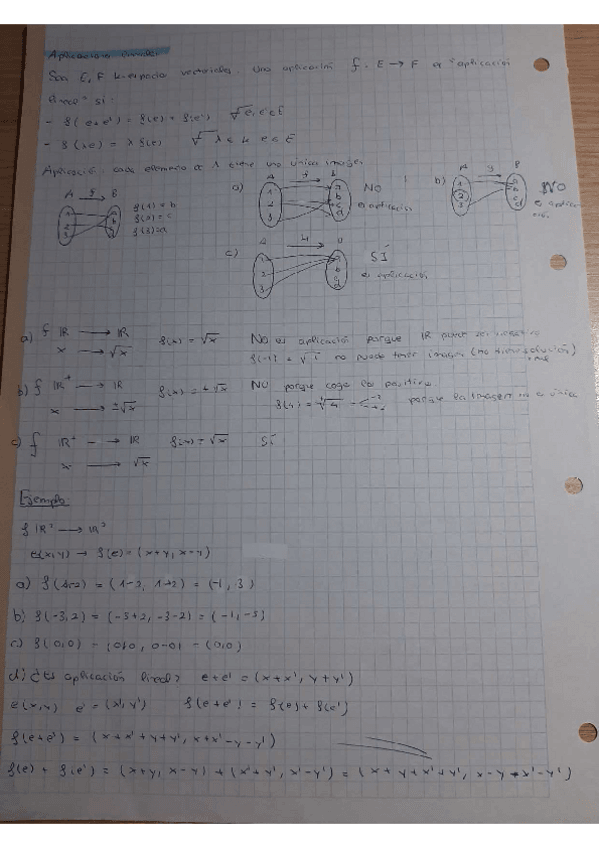 Aplicaciones lineales
Sean E, F k-espacios vectoriales. Una aplicación f: E → F es "aplicación
lineal" si:
- f(e+e') = f(e) + f(e') ∀ e, e' ∈ E
- f(λe) = λ f(e) ∀ λ ∈ k e ∈ E
Aplicación: cada elemento de A tiene una única imagen
A f B
1 2 3 a b c d
f(1) = b
f(2) = c
f(3) = a
a) A f B NO
1 2 3 a b c d
es aplicación
b) A g B NO
1 2 3 a b c d
es aplicación
c) A H B SÍ
1 2 3 a b c d
es aplicación
a) f ℝ → ℝ f(x) = √x No es aplicación porque ℝ puede ser negativo
x → √x f(-1) = √-1 no puede tener imagen (no tiene solución)
b) f ℝ⁺ → ℝ f(x) = ±√x NO porque coge los positivos
x → ±√x f(4) = √4 porque la imagen no es única
c) f ℝ⁺ → ℝ f(x) = √x SÍ
x → √x
Ejemplo
f ℝ² → ℝ²
e(x,y) → f(e) = (x+y, x-y)
a) f(1,-2) = (1-2, 1+2) = (-1, 3)
b) f(-3,2) = (-3+2, -3-2) = (-1,-5)
c) f(0,0) = (0+0, 0-0) = (0,0)
d) ¿Es aplicación lineal? e+e' = (x+x', y+y')
e(x,y) e' = (x',y') f(e+e') = f(e) + f(e')
f(e+e') = (x+x'+y+y', x+x'-y-y')
f(e) + f(e') = (x+y, x-y) + (x'+y', x'-y') = (x+y+x'+y', x-y+x'-y')